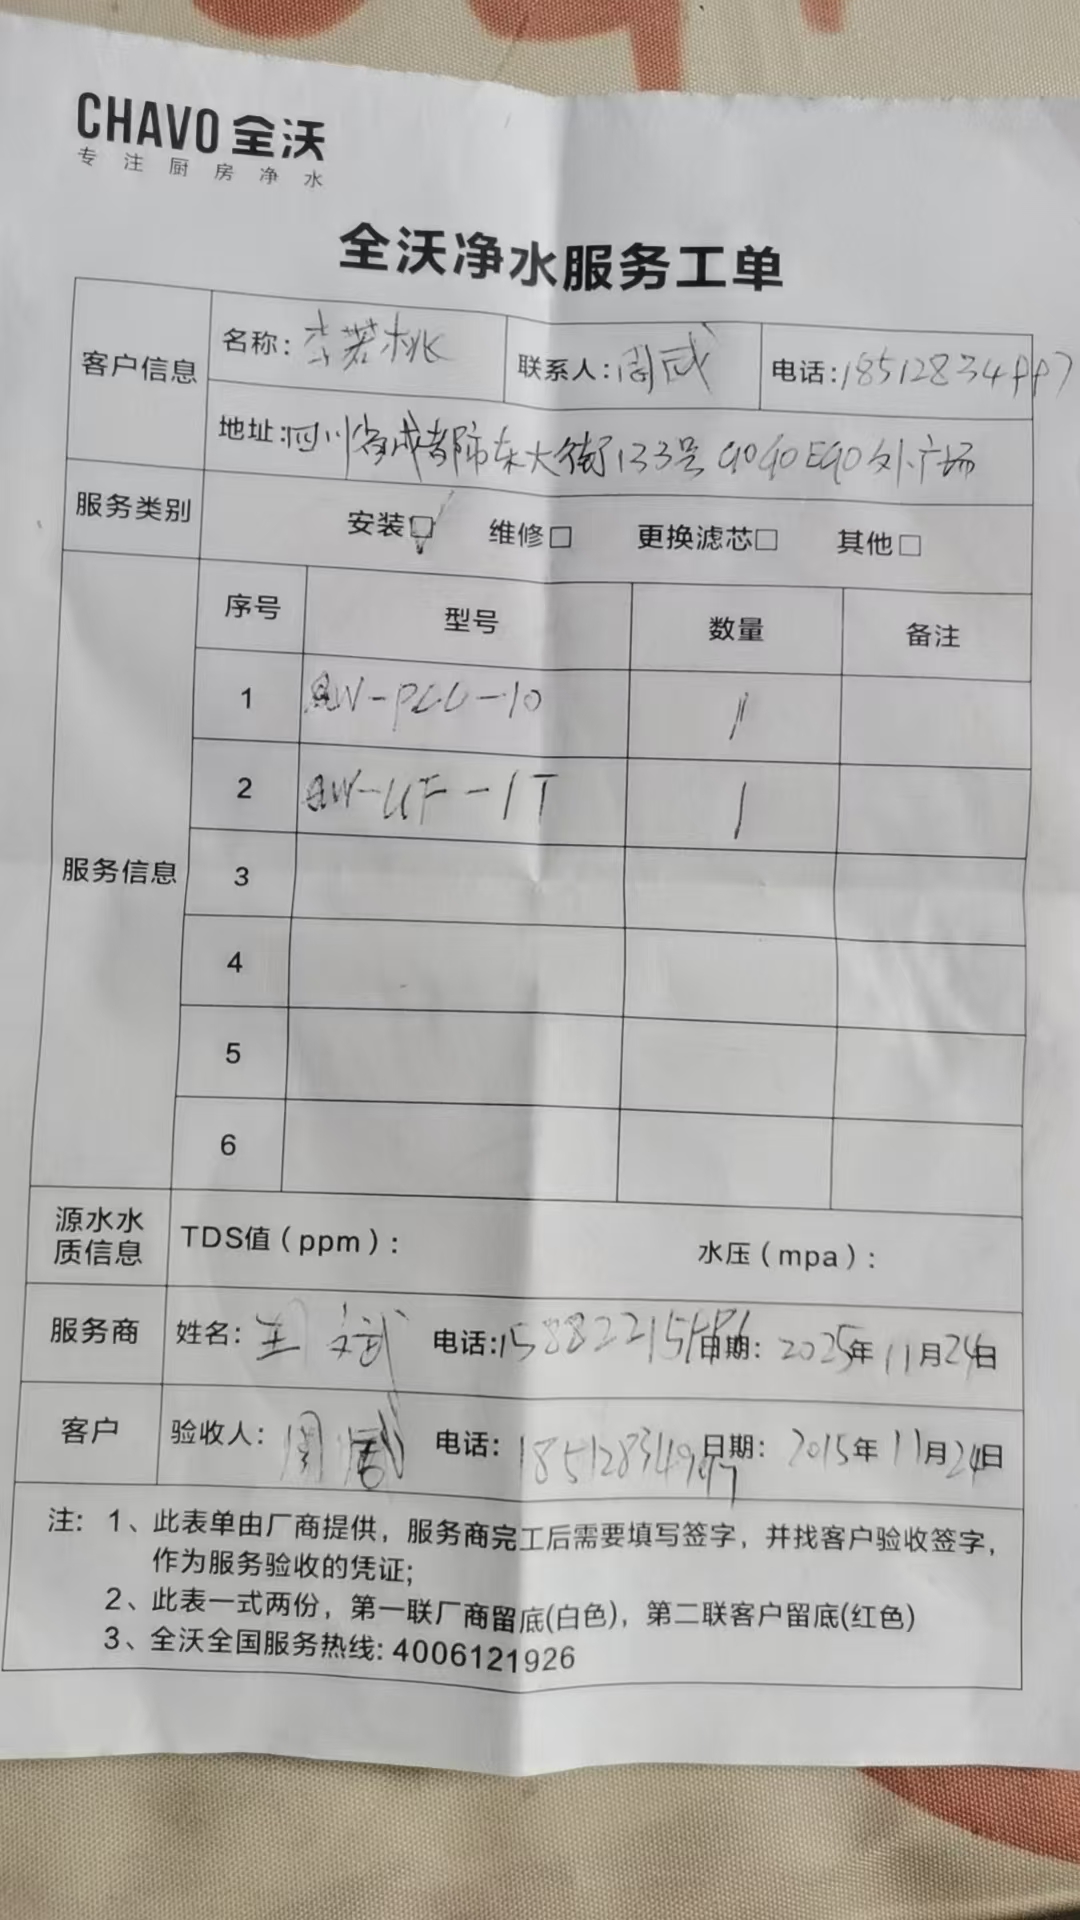 CHAVO 全沃
专注厨房净水
全沃净水服务工单
客户信息 名称: 李若桃 联系人: 周 电话: 18512834997
地址: 四川省成都市东大街133号 GOGOEGO外广场
服务类别 安装☑ 维修□ 更换滤芯□ 其他□
服务信息 序号 型号 数量 备注
1 QW-PCU-10 1
2 QW-UF-1T 1
3
4
5
6
源水水质信息 TDS值(ppm): 水压(mpa):
服务商 姓名: 文武 电话: 日期: 2025年11月24日
客户 验收人: 周 电话: 18512834997 日期: 2015年11月24日
注: 1、此表单由厂商提供,服务商完工后需要填写签字,并找客户验收签字,
作为服务验收的凭证;
2、此表一式两份,第一联厂商留底(白色),第二联客户留底(红色)
3、全沃全国服务热线: 4006121926